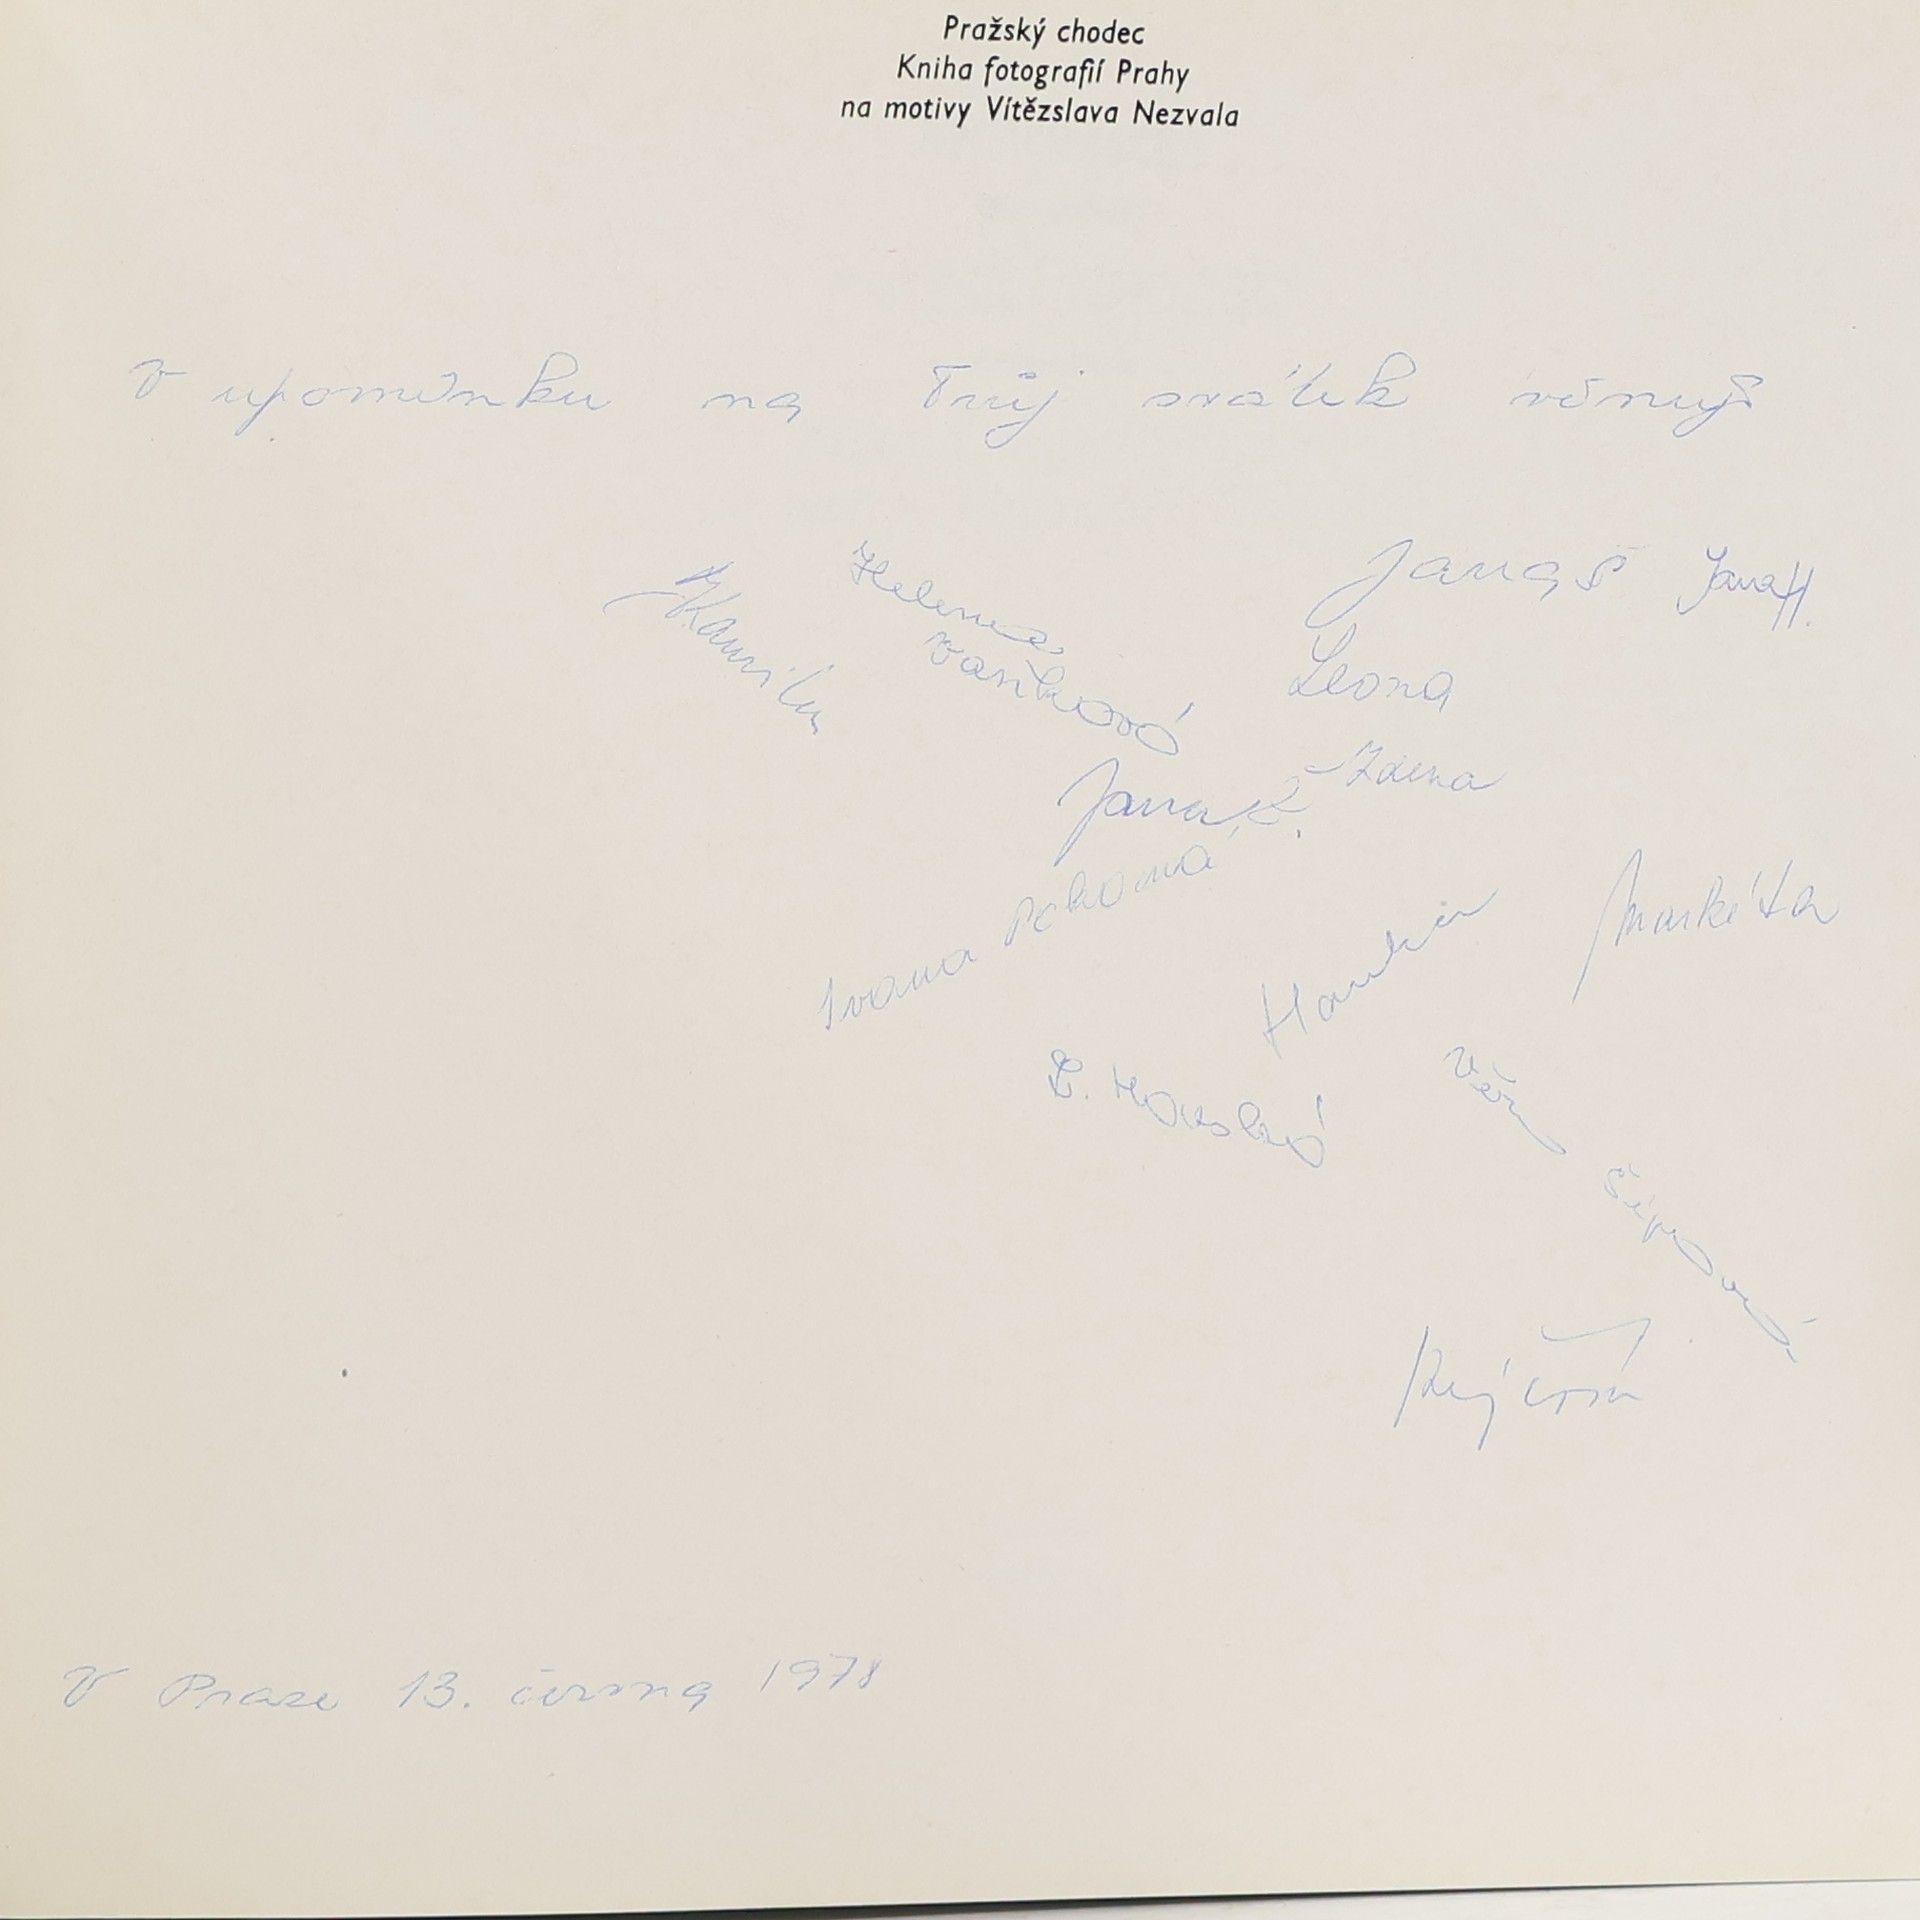 Pražský chodec
Kniha fotografií Prahy
na motivy Vítězslava Nezvala
V upomínku na Tvůj svátek věnují
Kamila
Helena
Vaňková
Jana Š
Jana H.
Leona
Zdena
Jana K.
Ivana
Hanka
Markéta
Z. Horská
Věra Čípová
V Praze 13. června 1978